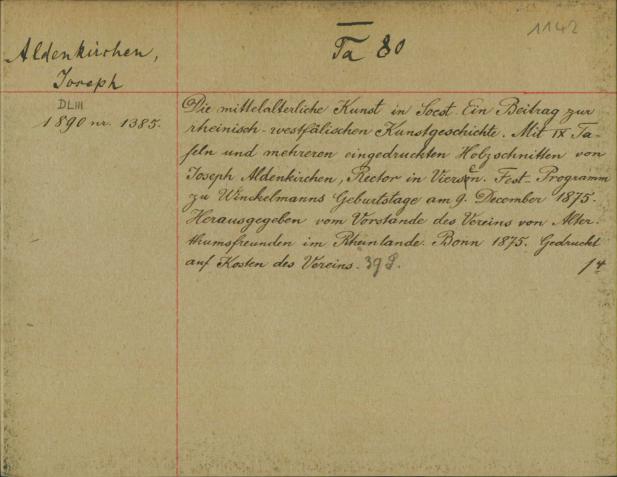 1142
Aldenkirchen,
Joseph
Ta 80
DLIII
1890 nr. 1385.
Die mittelalterliche Kunst in Soest. Ein Beitrag zur
rheinisch-westfälischen Kunstgeschichte. Mit IX Ta-
feln und mehreren eingedruckten Holzschnitten von
Joseph Aldenkirchen, Rector in Viersen. Fest-Programm
zu Winckelmanns Geburtstage am 9. December 1875.
Herausgegeben vom Vorstande des Vereins von Alter-
thumsfreunden im Rheinlande. Bonn 1875. Gedruckt
auf Kosten des Vereins. 39 S.